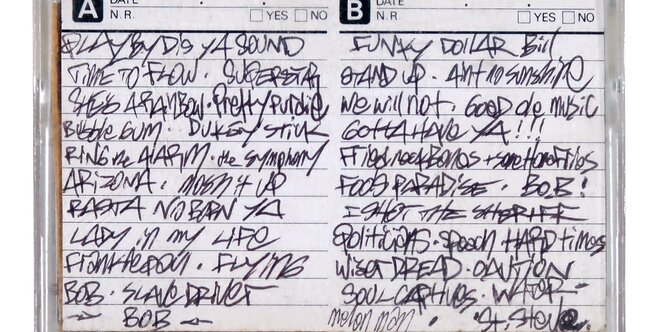 A DATE
N.R. YES NO
PLAY BY D's YA SOUND
TIME TO FLOW · SUPERSTAR
SHES A RAINBOW · Pretty Purdie
Bubble GUM · DUKEY STICK
RING the ALARM · the Symphony
ARIZONA · mash it up
RASTA NO BORN YA
LADY in my LIFE
· FLYING
BOB · SLAVE DRIVER
BOB
B DATE
N.R. YES NO
FUNKY DOLLAR Bill
STAND UP · Aint no sunshine
we will not · Good ole music
GOTTA HAVE YA!!!
FOOLS PARADISE · BOB!
I SHOT THE SHERIFF
politicians · HARD times
WISER DREAD · CAUTION
SOUL CAPTIVES · WATER
melon man · St. Steve